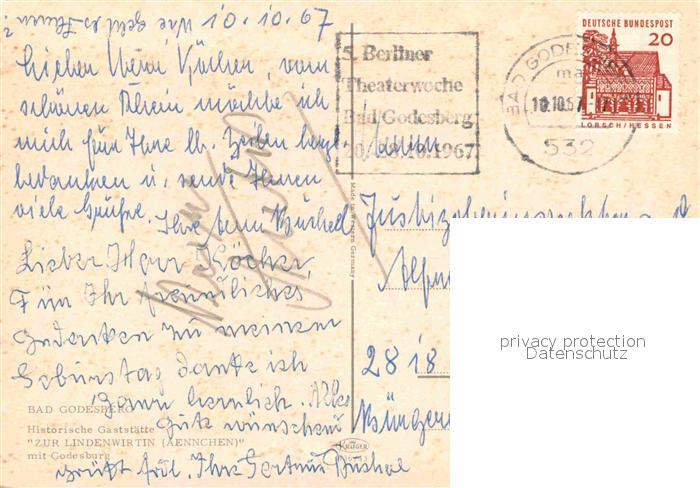 10.10.67 Wie geht es Ihnen?
Lieber Herr Köcher, vom
schönen Rhein möchte ich
mich für Ihre lb. Zeilen herzl.
bedanken u. sende Ihnen
viele Grüße. Ihre
Lieber Herr Köcher,
Für Ihr freundliches
Gedenken zu meinem
Geburtstag danke ich
Ihnen herzlich. Alles
Gute wünschend
grüßt frdl. Ihre Gertrud
BAD GODESBERG
Historische Gaststätte
"ZUR LINDENWIRTIN (AENNCHEN)"
mit Godesburg
Made in Western Germany
KRÜGER
5. Berliner
Theaterwoche
Bad Godesberg
10.1967
BAD GODESBERG
10.10.67
532
DEUTSCHE BUNDESPOST
20
LORSCH/HESSEN
Herrn
2818
privacy protection
Datenschutz